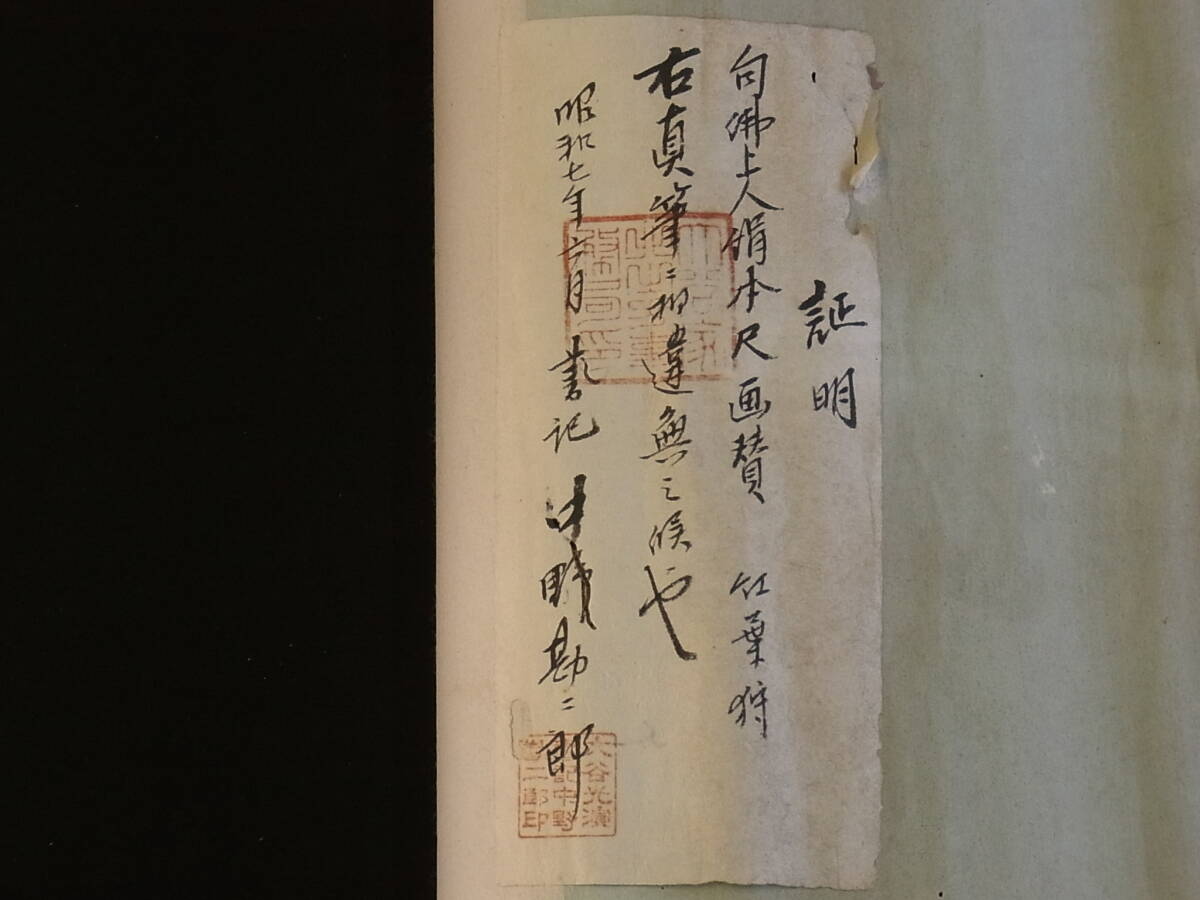 証明
句佛上人絹本尺画賛 紅葉狩
右真筆ニ相違無之候也
昭和七年六月 書記 中野勘二郎
大谷光演
書記中野
勘二郎印